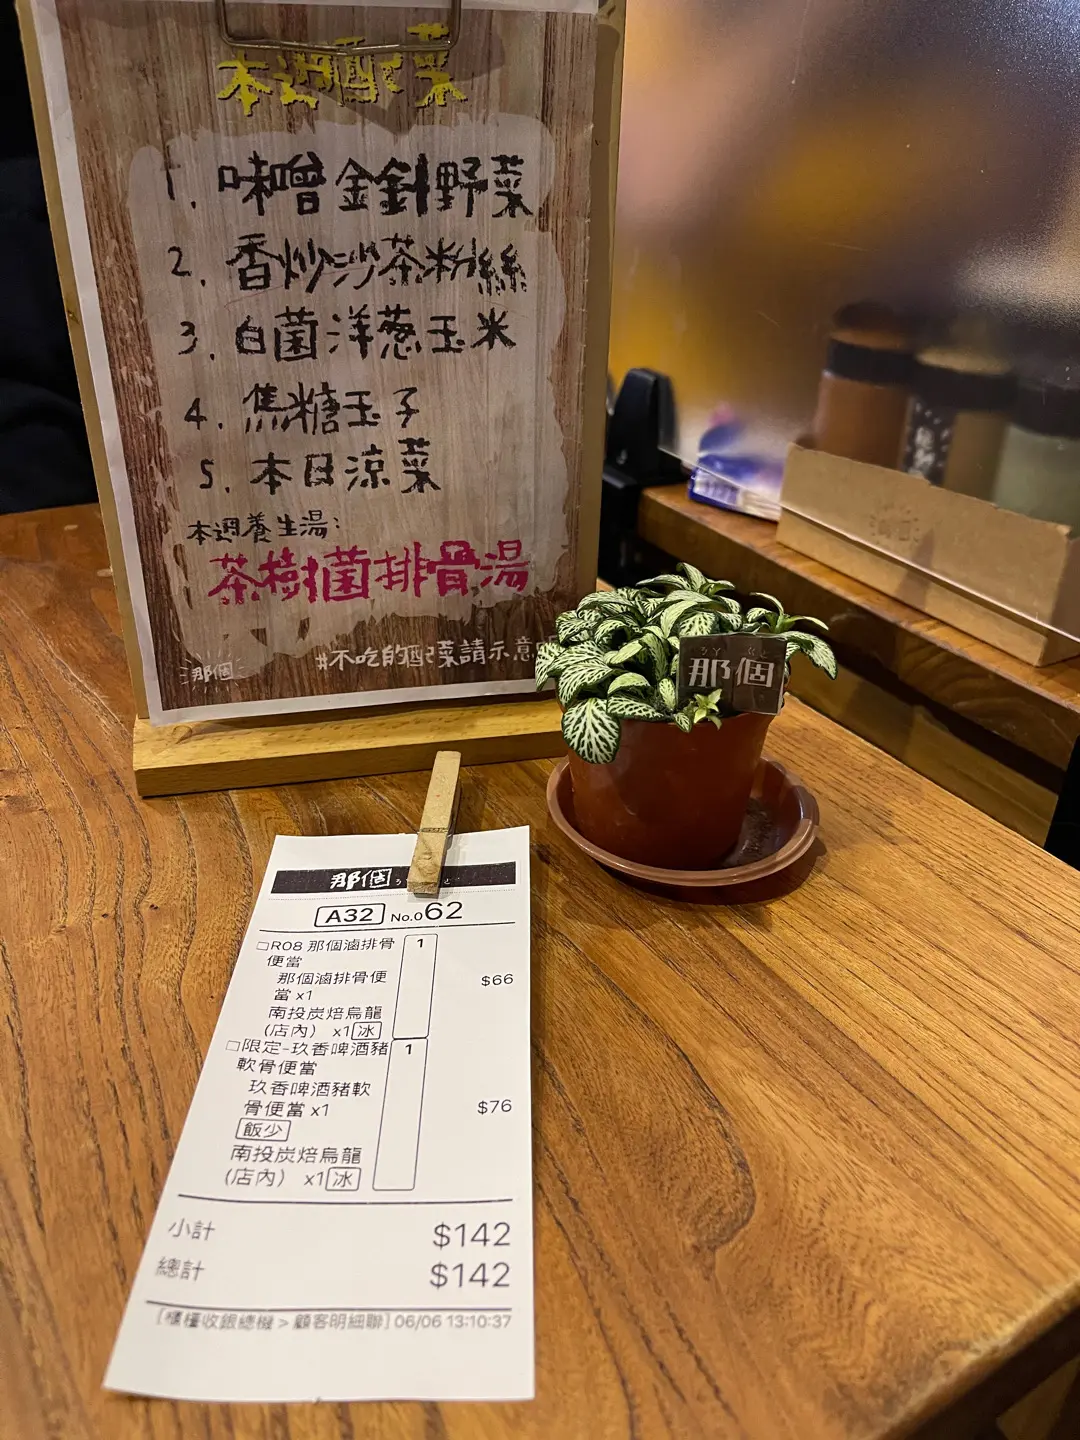 本週配菜
1. 味噌金針野菜
2. 香炒沙茶粉絲
3. 白菌洋蔥玉米
4. 焦糖玉子
5. 本日涼菜
本週養生湯:
茶樹菌排骨湯
那個
#不吃的配菜請示意
ㄋㄚ ㄍㄜ
那個
那個
A32 No.062
□R08 那個滷排骨 1
便當
那個滷排骨便 $66
當 x1
南投炭焙烏龍
(店內) x1 冰
□限定-玖香啤酒豬 1
軟骨便當
玖香啤酒豬軟
骨便當 x1 $76
飯少
南投炭焙烏龍
(店內) x1 冰
小計 $142
總計 $142
[櫃檯收銀總機 > 顧客明細聯] 06/06 13:10:37